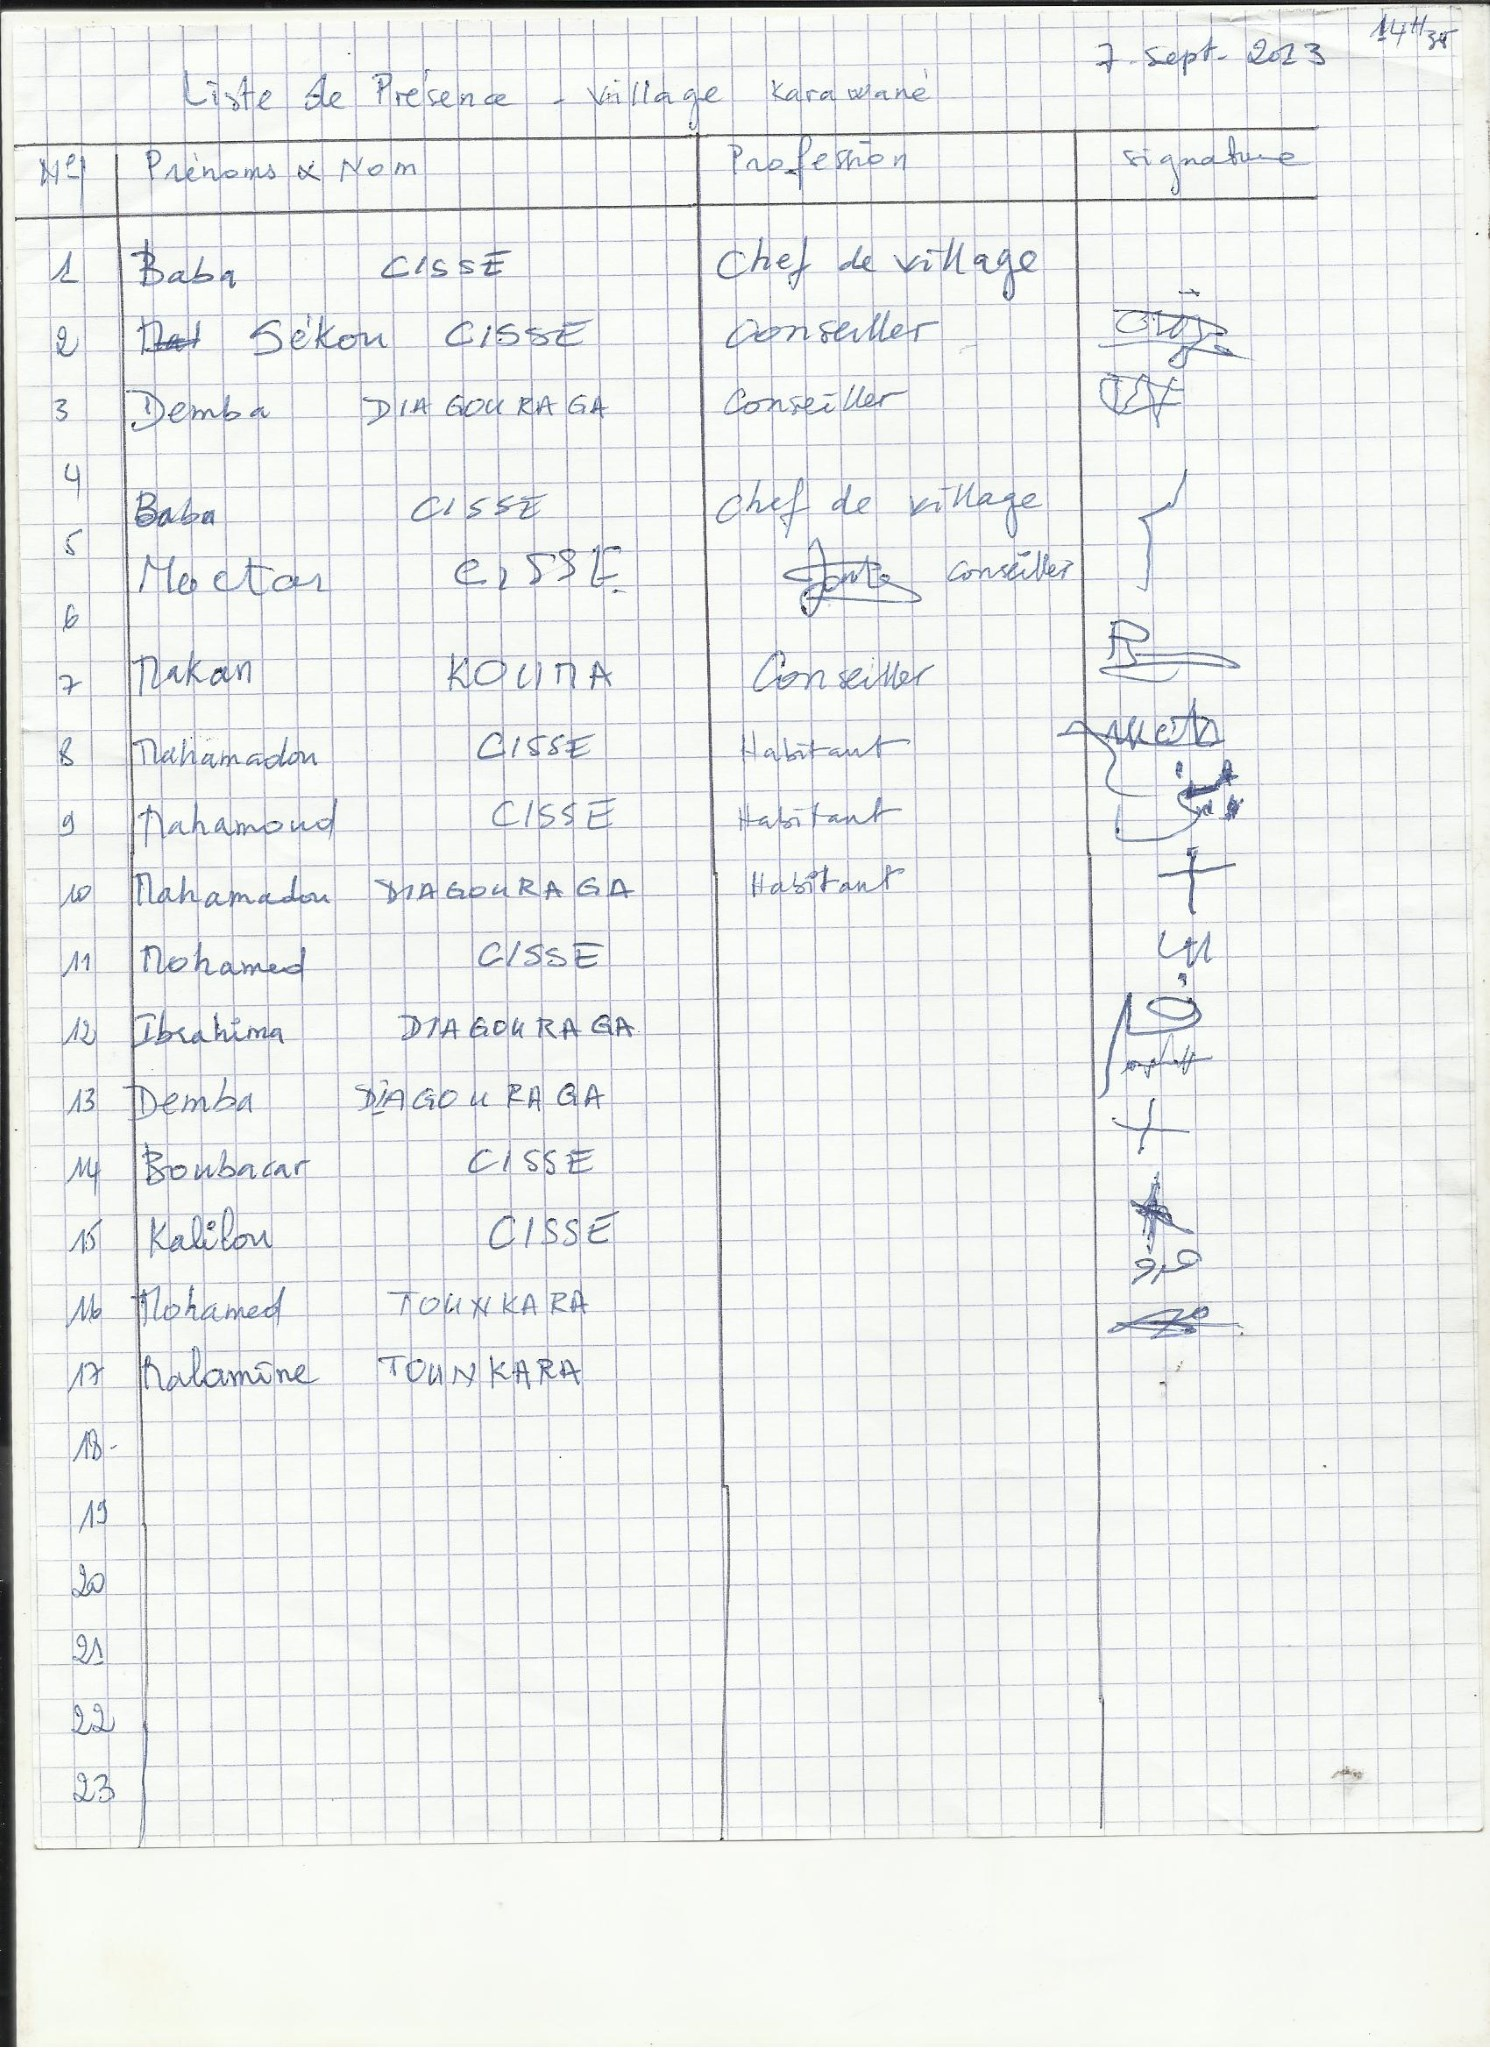 14H35
7 - Sept - 2013
Liste de Présence - Village Karawané
N° Prénoms & Nom Profession Signature
1 Baba CISSE Chef de village
2 Sékou CISSE Conseiller
3 Demba DIAGOURAGA Conseiller
4
Baba CISSE Chef de village
5
Moctar CISSE. Conseiller
6
7 Makan KOUMA Conseiller
8 Mahamadou CISSE Habitant
9 Mahamoud CISSE Habitant
10 Mahamadou DIAGOURAGA Habitant
11 Mohamed CISSE
12 Ibrahima DIAGOURAGA
13 Demba DIAGOURAGA
14 Boubacar CISSE
15 Kalilou CISSE
16 Mohamed TOUNKARA
17 Malamine TOUNKARA
18-
19
20
21
22
23